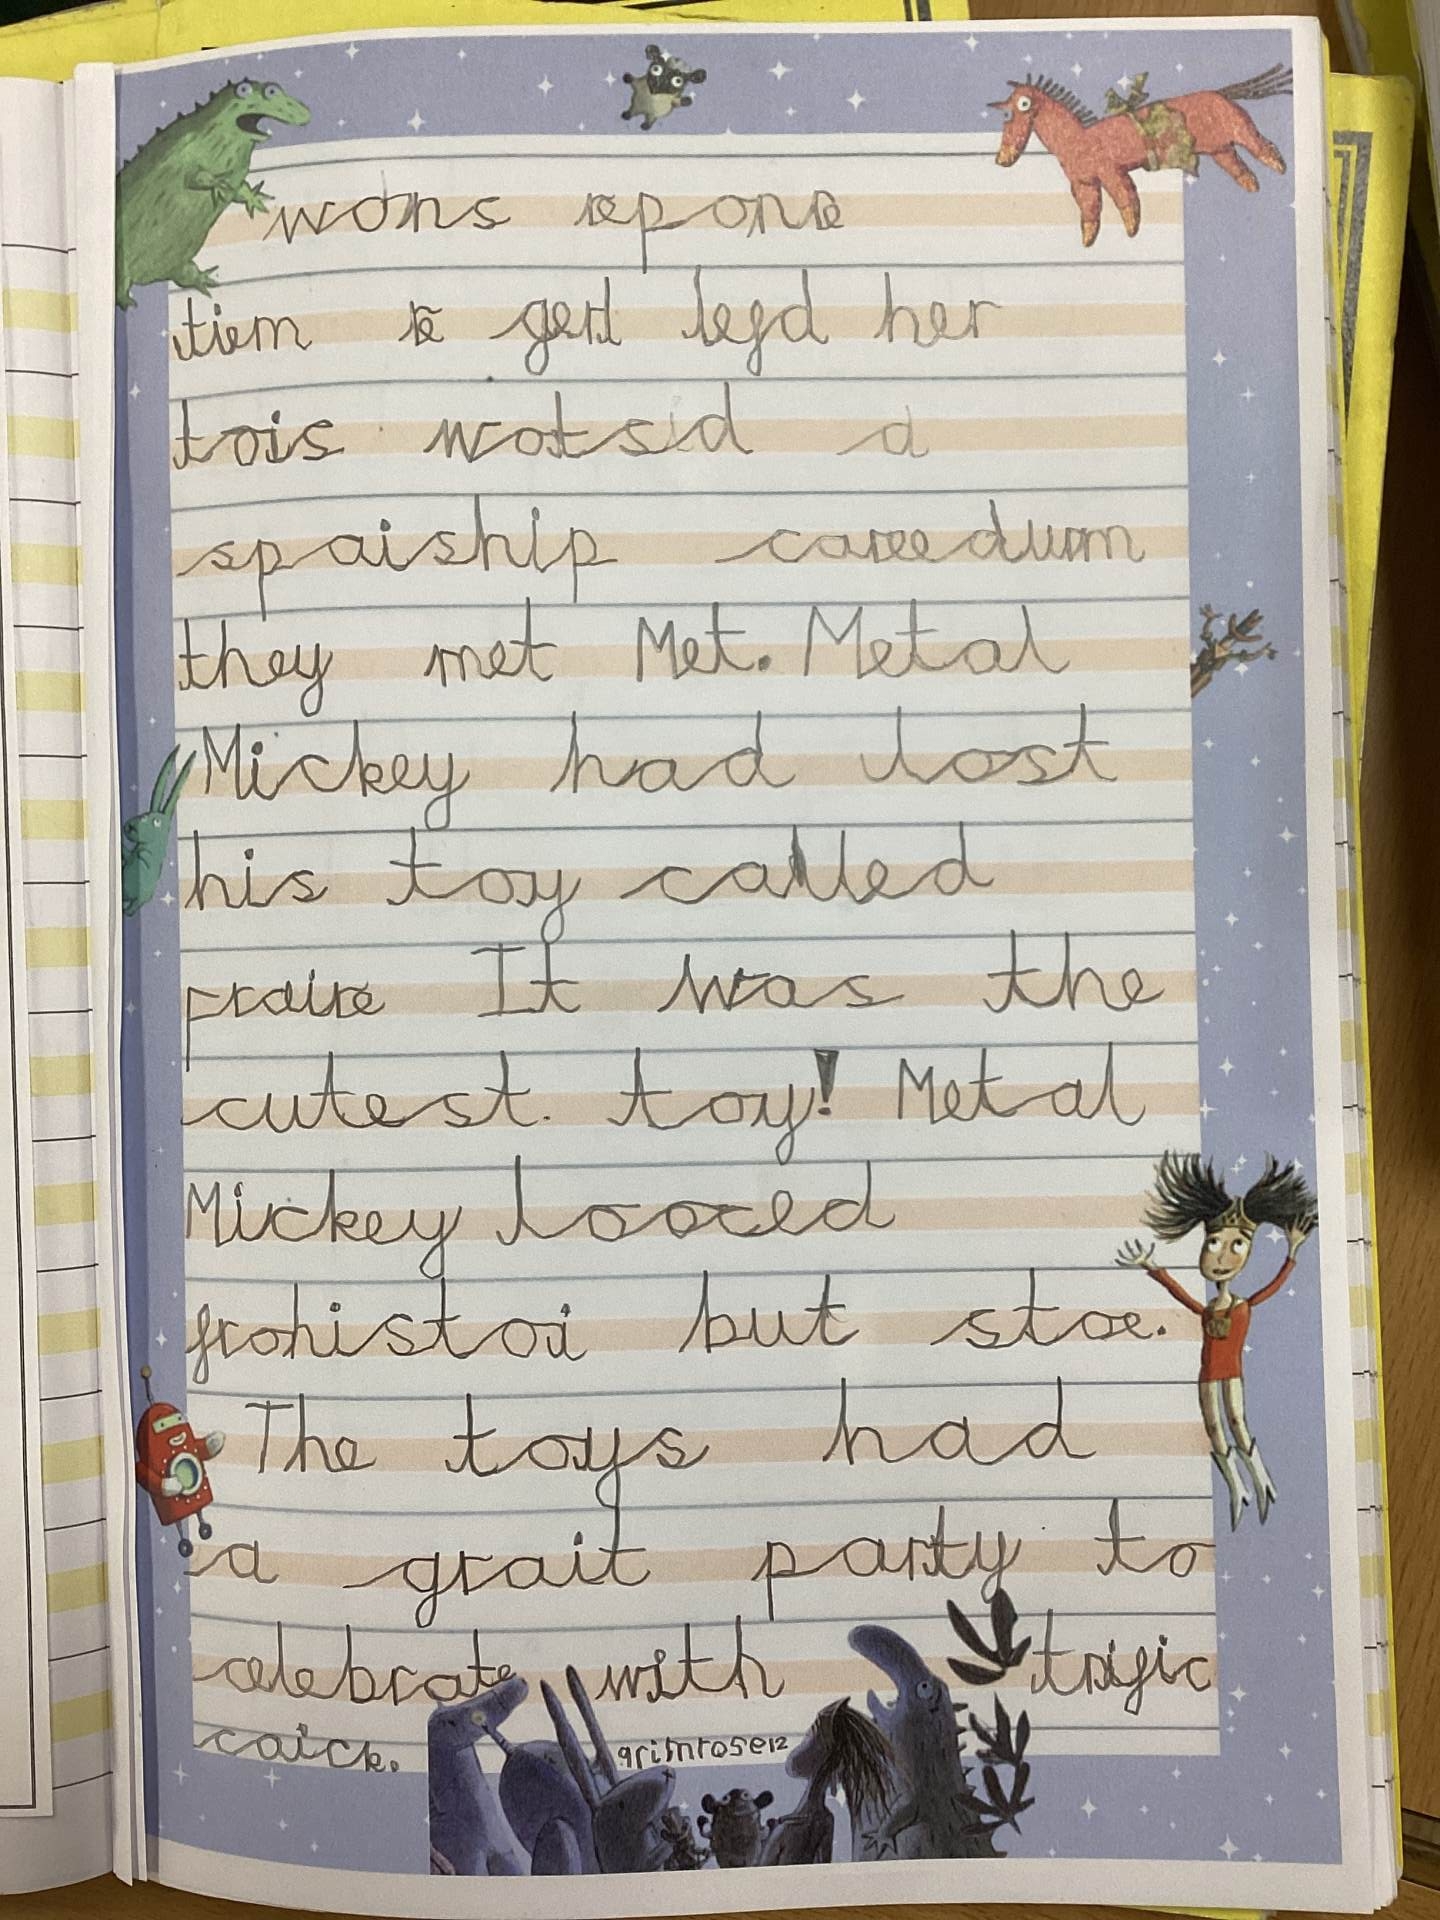 wons epone
tiem a gerl lefd her
tois wotsid a
spaiship caeedum
they met Met. Metal
Mickey had lost
his toy called
praire It was the
cutest. toy! Metal
Mickey looced
frohistoi but stoe.
The toys had
a grait party to
celebrate with trific
caick.
grimrose12